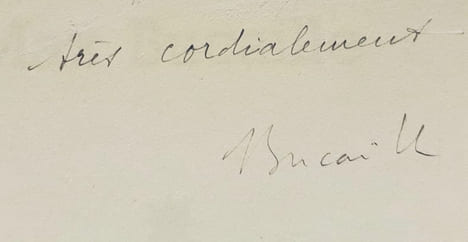 très cordialement
Bucaill